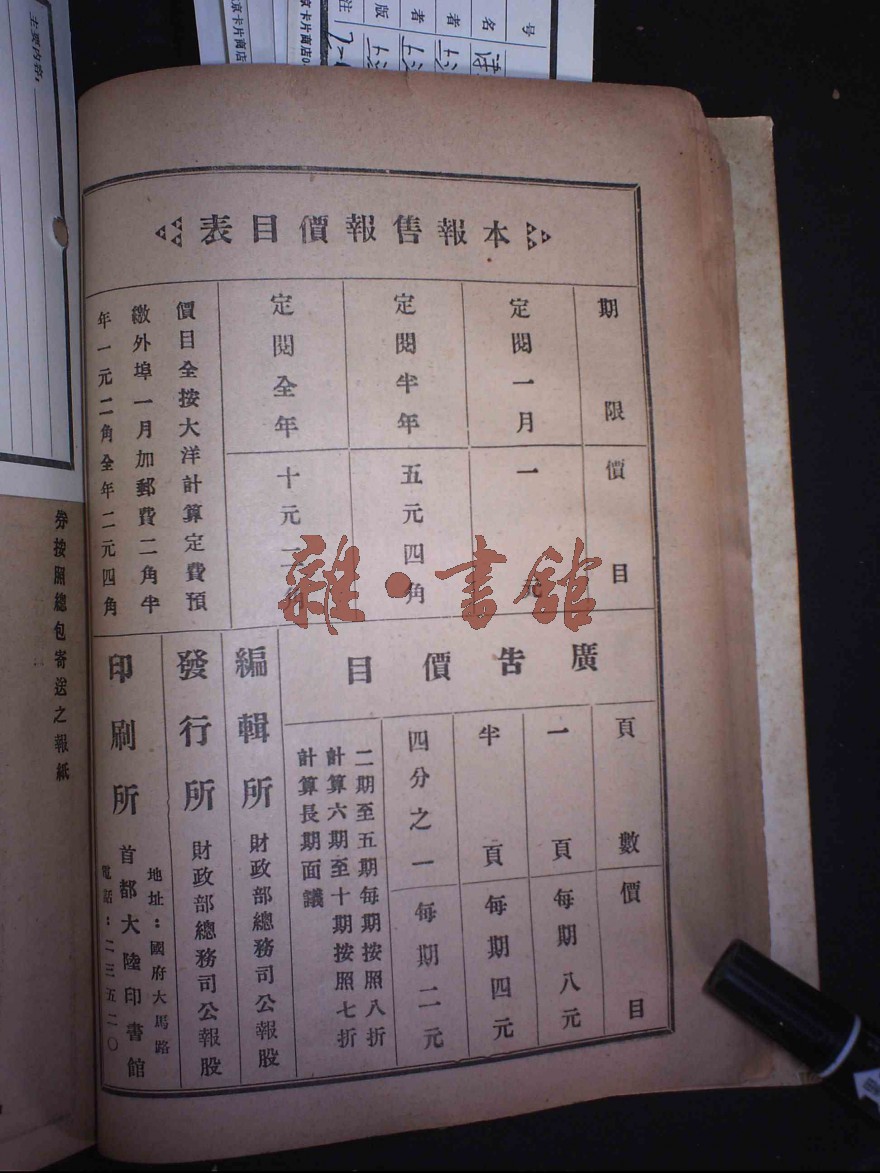 本報售報價目表
期限
價目
定閱一月
一元
定閱半年
五元四角
定閱全年
十元二角
價目全按大洋計算定費預
繳外埠一月加郵費二角半
年一元二角全年二元四角
廣告價目
頁數
價目
一頁
每期八元
半頁
每期四元
四分之一
每期二元
二期至五期每期按照八折
計算六期至十期按照七折
計算長期面議
編輯所
財政部總務司公報股
發行所
財政部總務司公報股
印刷所
首都大陸印書館
地址：國府大馬路
電話：二三五二〇
券按照總包寄送之報紙
雜·書館
主要內容：
京卡片商店
號
名
者
者
版
注